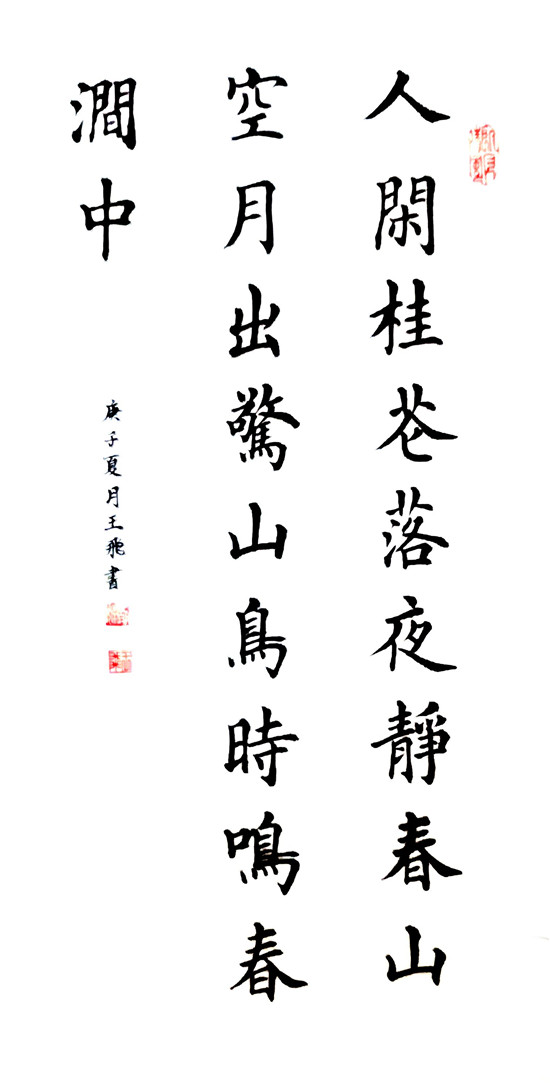 人閑桂花落夜靜春山
空月出驚山鳥時鳴春
澗中
庚子夏月王飛書